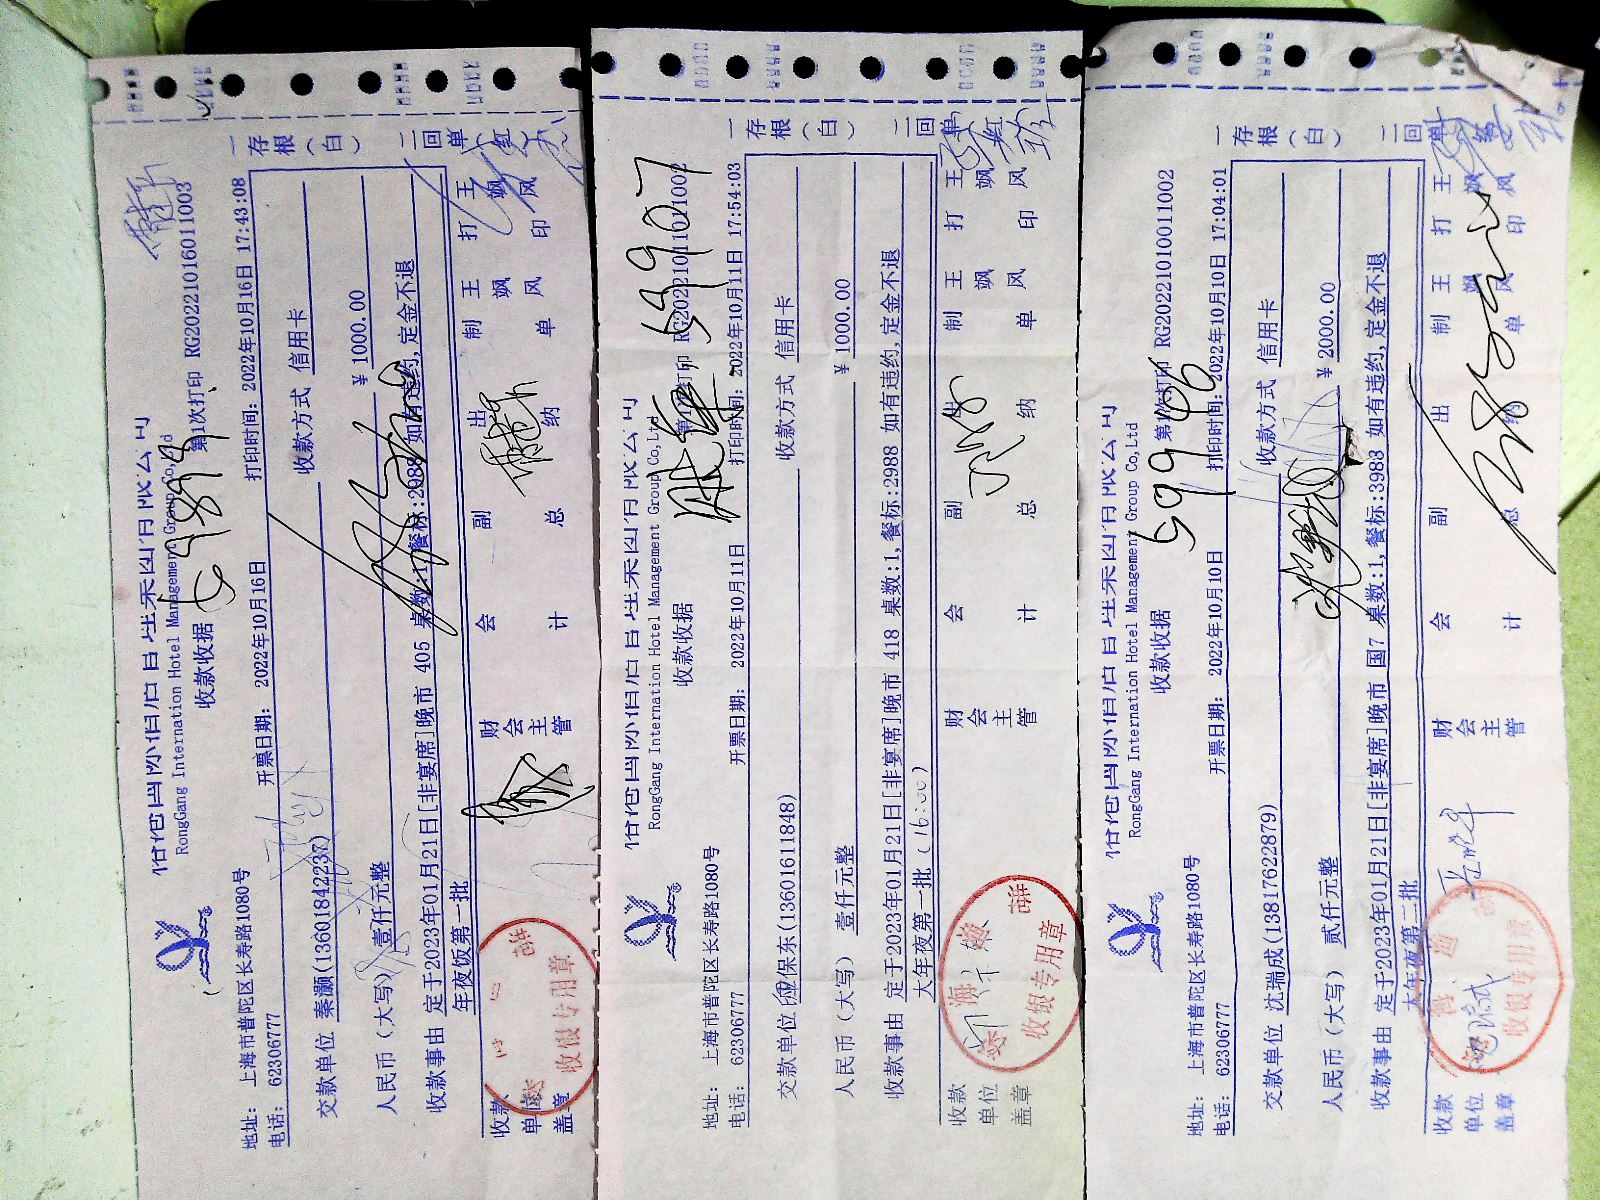 RongGang Internation Hotel Management Group Co,Ltd
收款收据 第1次打印 RG20221016011003
地址: 上海市普陀区长寿路1080号
电话: 62306777 开票日期: 2022年10月16日 打印时间: 2022年10月16日 17:43:08
交款单位 秦灏(13601842237) 收款方式 信用卡
人民币(大写) 壹仟元整 ¥ 1000.00
收款事由 定于2023年01月21日[非宴席]晚市 405 桌数:1,餐标:2988 如有违约,定金不退
年夜饭第一批
收款单位盖章 财会主管 会计 副总 出纳 制单 王飒风 打印 王飒风
一存根(白) 二回单(红)
收银专用章
69894
RongGang Internation Hotel Management Group Co,Ltd
收款收据 第1次打印 RG20221011011002
地址: 上海市普陀区长寿路1080号
电话: 62306777 开票日期: 2022年10月11日 打印时间: 2022年10月11日 17:54:03
交款单位 保东(13601611848) 收款方式 信用卡
人民币(大写) 壹仟元整 ¥ 1000.00
收款事由 定于2023年01月21日[非宴席]晚市 418 桌数:1,餐标:2988 如有违约,定金不退
大年夜第一批 (16:00)
收款单位盖章 财会主管 会计 副总 出纳 制单 王飒风 打印 王飒风
一存根(白) 二回单(红)
收银专用章
69907
RongGang Internation Hotel Management Group Co,Ltd
收款收据 第1次打印 RG20221010011002
地址: 上海市普陀区长寿路1080号
电话: 62306777 开票日期: 2022年10月10日 打印时间: 2022年10月10日 17:04:01
交款单位 沈瑞成(13817622879) 收款方式 信用卡
人民币(大写) 贰仟元整 ¥ 2000.00
收款事由 定于2023年01月21日[非宴席]晚市 国7 桌数:1,餐标:3988 如有违约,定金不退
大年夜第二批
收款单位盖章 财会主管 会计 副总 出纳 制单 王飒风 打印 王飒风
一存根(白) 二回单
收银专用章
69966